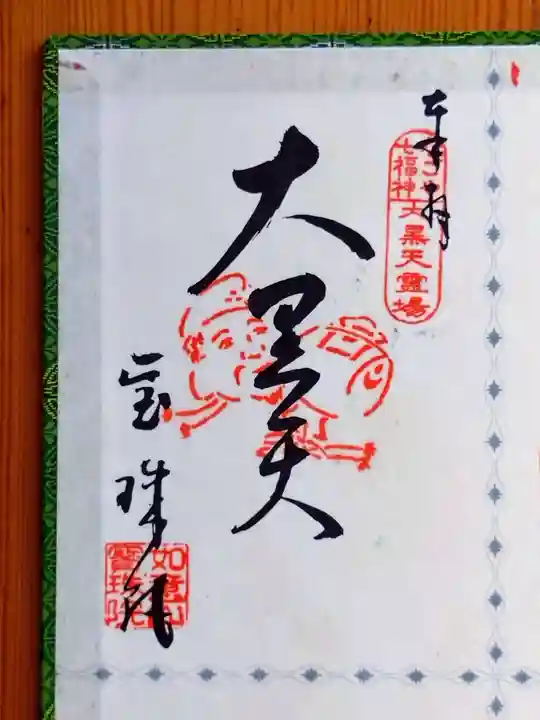 奉拝
七福神
大黒天霊場
大黒天
宝珠院
如意山
寳珠院